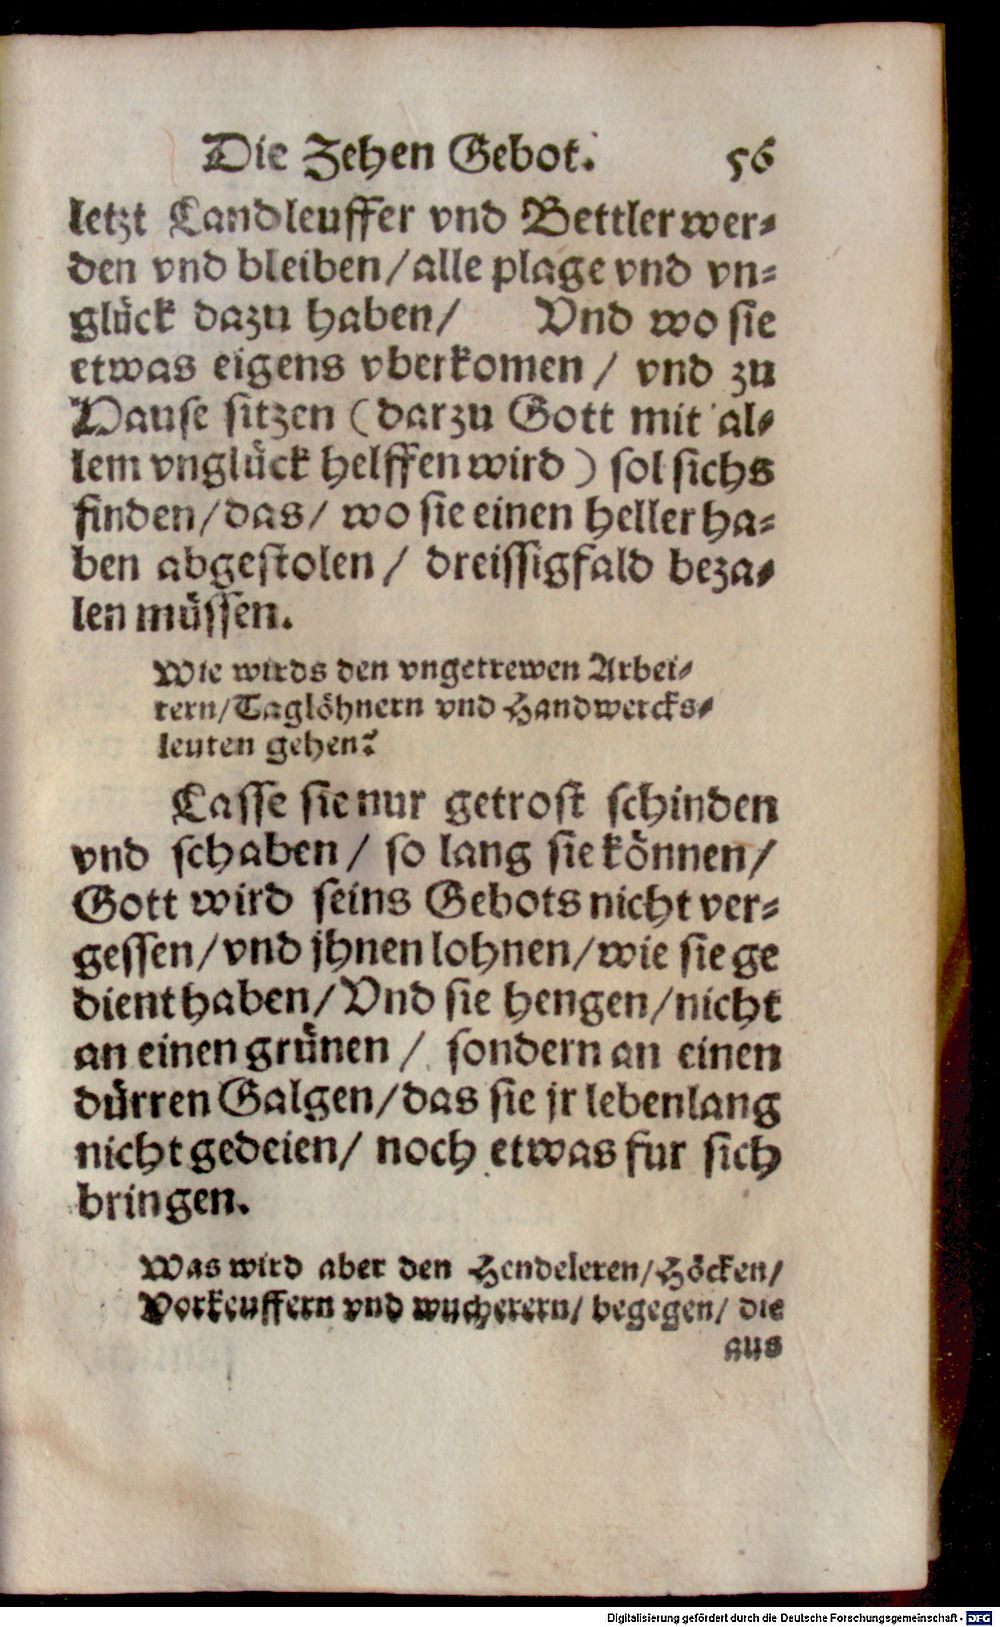 Die Zehen Gebot. 56
letzt Landleuffer vnd Bettler wer-
den vnd bleiben/alle plage vnd vn-
glück dazu haben/ Vnd wo sie
etwas eigens vberkomen / vnd zu
Hause sitzen (darzu Gott mit al-
lem vnglück helffen wird) sol sichs
finden/das/ wo sie einen heller ha-
ben abgestolen / dreissigfald beza-
len müssen.
Wie wirds den vngetrewen Arbei-
tern/Taglöhnern vnd Handwercks-
leuten gehen?
Lasse sie nur getrost schinden
vnd schaben / so lang sie können/
Gott wird seins Gebots nicht ver-
gessen/vnd jhnen lohnen/wie sie ge
dient haben/Vnd sie hengen/nicht
an einen grünen / sondern an einen
dürren Galgen/das sie jr lebenlang
nicht gedeien/ noch etwas fur sich
bringen.
Was wird aber den Hendeleren/Höcken/
Vorkeuffern vnd wucherern/ begegen/ die
aus
Digitalisierung gefördert durch die Deutsche Forschungsgemeinschaft - DFG